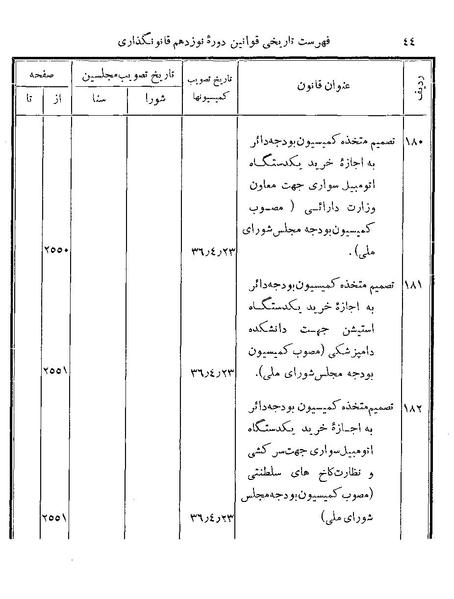 ۴۴ فهرست تاریخی قوانین دورهٔ نوزدهم قانونگذاری
ردیف عنوان قانون تاریخ تصویب کمیسیونها تاریخ تصویب مجلسین صفحه
شورا سنا از تا
۱۸۰ تصمیم متخذه کمیسیون بودجه دائر
به اجازهٔ خرید یکدستگاه
اتومبیل سواری جهت معاون
وزارت دارائی ( مصوب
کمیسیون بودجه مجلس شورای
ملی). ۳۶٫۴٫۲۳ ۲۵۵۰
۱۸۱ تصمیم متخذه کمیسیون بودجه دائر
به اجازهٔ خرید یکدستگاه
استیشن جهت دانشکده
دامپزشکی (مصوب کمیسیون
بودجه مجلس شورای ملی). ۳۶٫۴٫۲۳ ۲۵۵۱
۱۸۲ تصمیم متخذه کمیسیون بودجه دائر
به اجازهٔ خرید یکدستگاه
اتومبیل سواری جهت سرکشی
و نظارت کاخ های سلطنتی
(مصوب کمیسیون بودجه مجلس
شورای ملی) ۳۶٫۴٫۲۳ ۲۵۵۱